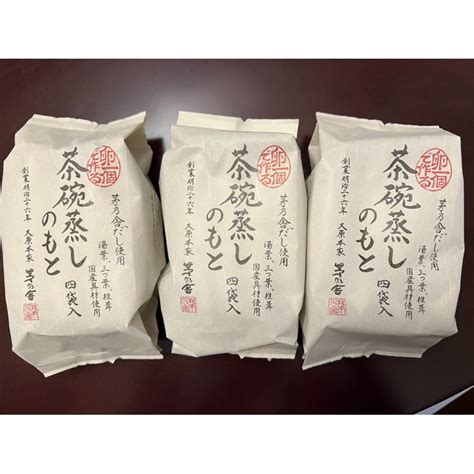 卵一個
で作る
茶碗蒸し
のもと
四袋入
茅乃舎だし使用
湯葉、三つ葉、椎茸
国産具材使用
創業明治二十六年 久原本家
茅乃舎
卵一個
で作る
茶碗蒸し
のもと
四袋入
茅乃舎だし使用
湯葉、三つ葉、椎茸
国産具材使用
創業明治二十六年 久原本家
茅乃舎
卵一個
で作る
茶碗蒸し
のもと
四袋入
茅乃舎だし使用
湯葉、三つ葉、椎茸
国産具材使用
創業明治二十六年 久原本家
茅乃舎